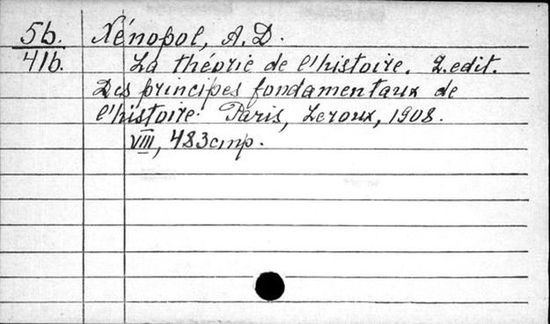 5b. Xénopol, A.D.
41b. La théorie de l'histoire. 2.edit.
Des principes fondamentaux de
l'histoire. Paris, Leroux, 1908.
VIII, 483 cmp.